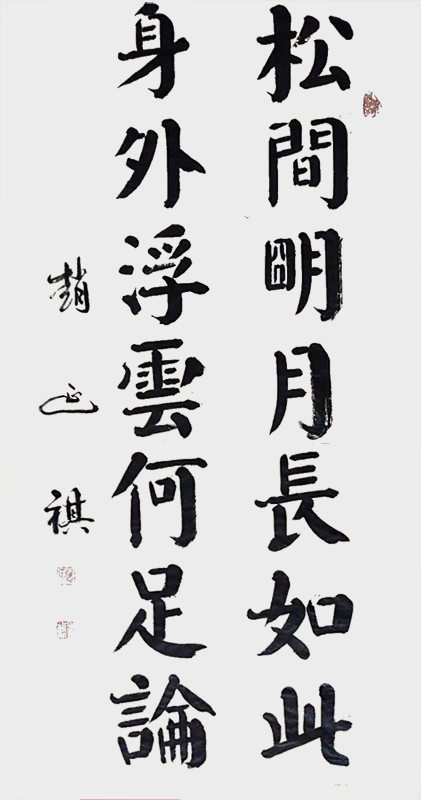 松間朙月長如此
身外浮雲何足論
趙 祺